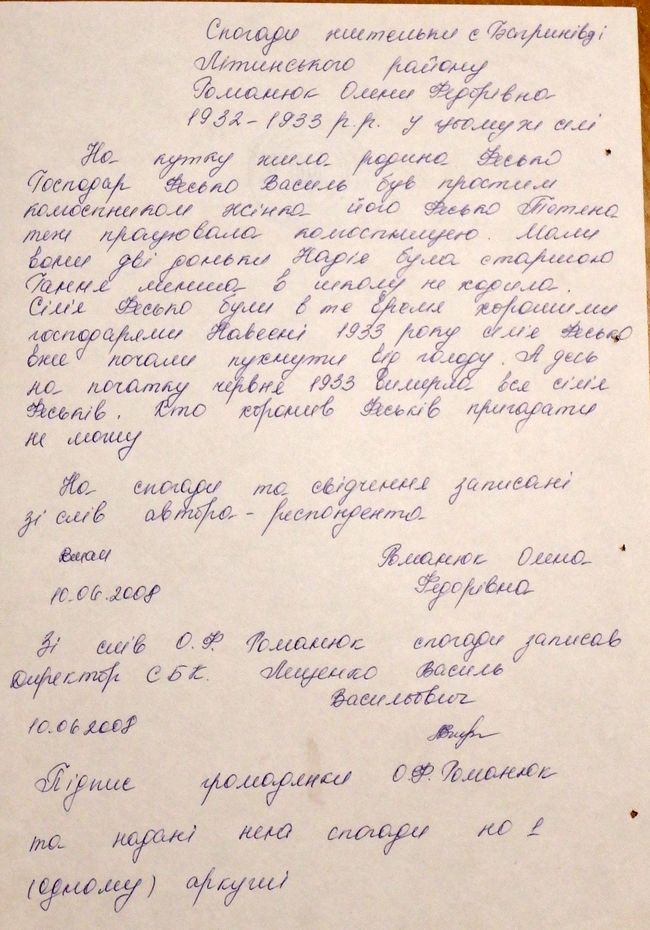 Спогади жительки с Багринівці
Літинського району
Романюк Олени Федорівна
1932-1933 р.р. у цьому ж селі
На кутку жила родина Фесько
Господар Фесько Василь був простим
колгоспником жінка його Фесько Тетяна
теж працювала колгоспницею. Мали
вони дві доньки Надія була старшою
Гання менша в школу не ходила.
Сім'я Фесько були в те время хорошими
господарями Навесні 1933 року сім'я Фесько
вже почали пухнути від голоду. А десь
на початку червня 1933 вимерла вся сім'я
Феськів. Хто хоронив Феськів пригадати
не можу
На спогади та свідчення записані
зі слів автора-респондента
Романюк Олена
10.06.2008 Федорівна
Зі слів О.Ф. Романюк спогади записав
Директор СБК. Лященко Василь
Васильович
10.06 2008
Підпис громадянки О.Ф.Романюк
та надані нею спогади на 1
(одному) аркуші